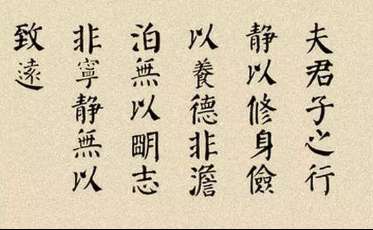 夫君子之行
静以修身儉
以養德非澹
泊無以朙志
非寧静無以
致遠